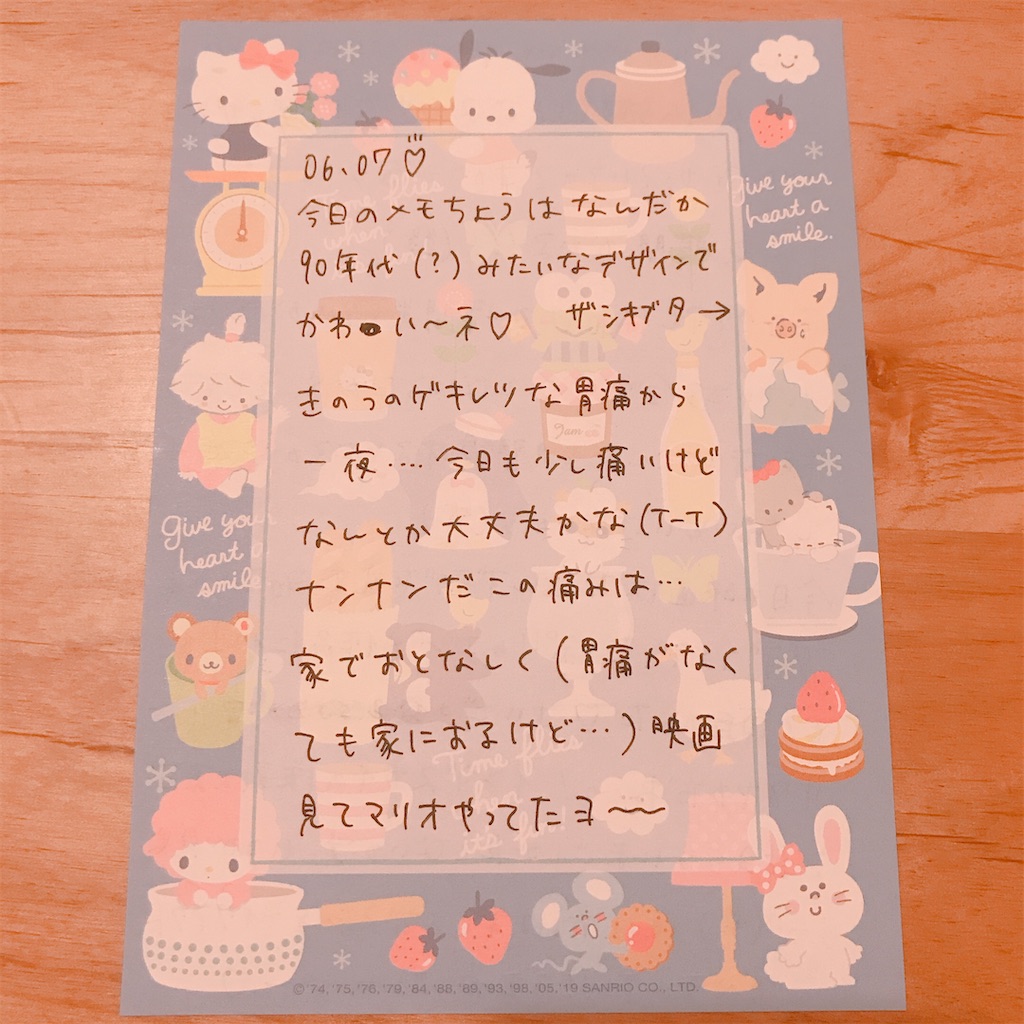 06、07♡
今日のメモちょうはなんだか
90年代(?)みたいなデザインで
かわい〜ネ♡ ザシキブタ→
きのうのゲキレツな胃痛から
一夜‥‥今日も少し痛いけど
なんとか大丈夫かな(T-T)
ナンナンだこの痛みは…
家でおとなしく(胃痛がなく
ても家におるけど…)映画
見てマリオやってたヨ〜〜
Give your
heart a
smile.
Give your
heart a
smile.
Time flies
when
Jam
Time flies
when
its fun!
©'74,'75,'76,'79,'84,'88,'89,'93,'98,'05,'19 SANRIO CO., LTD.